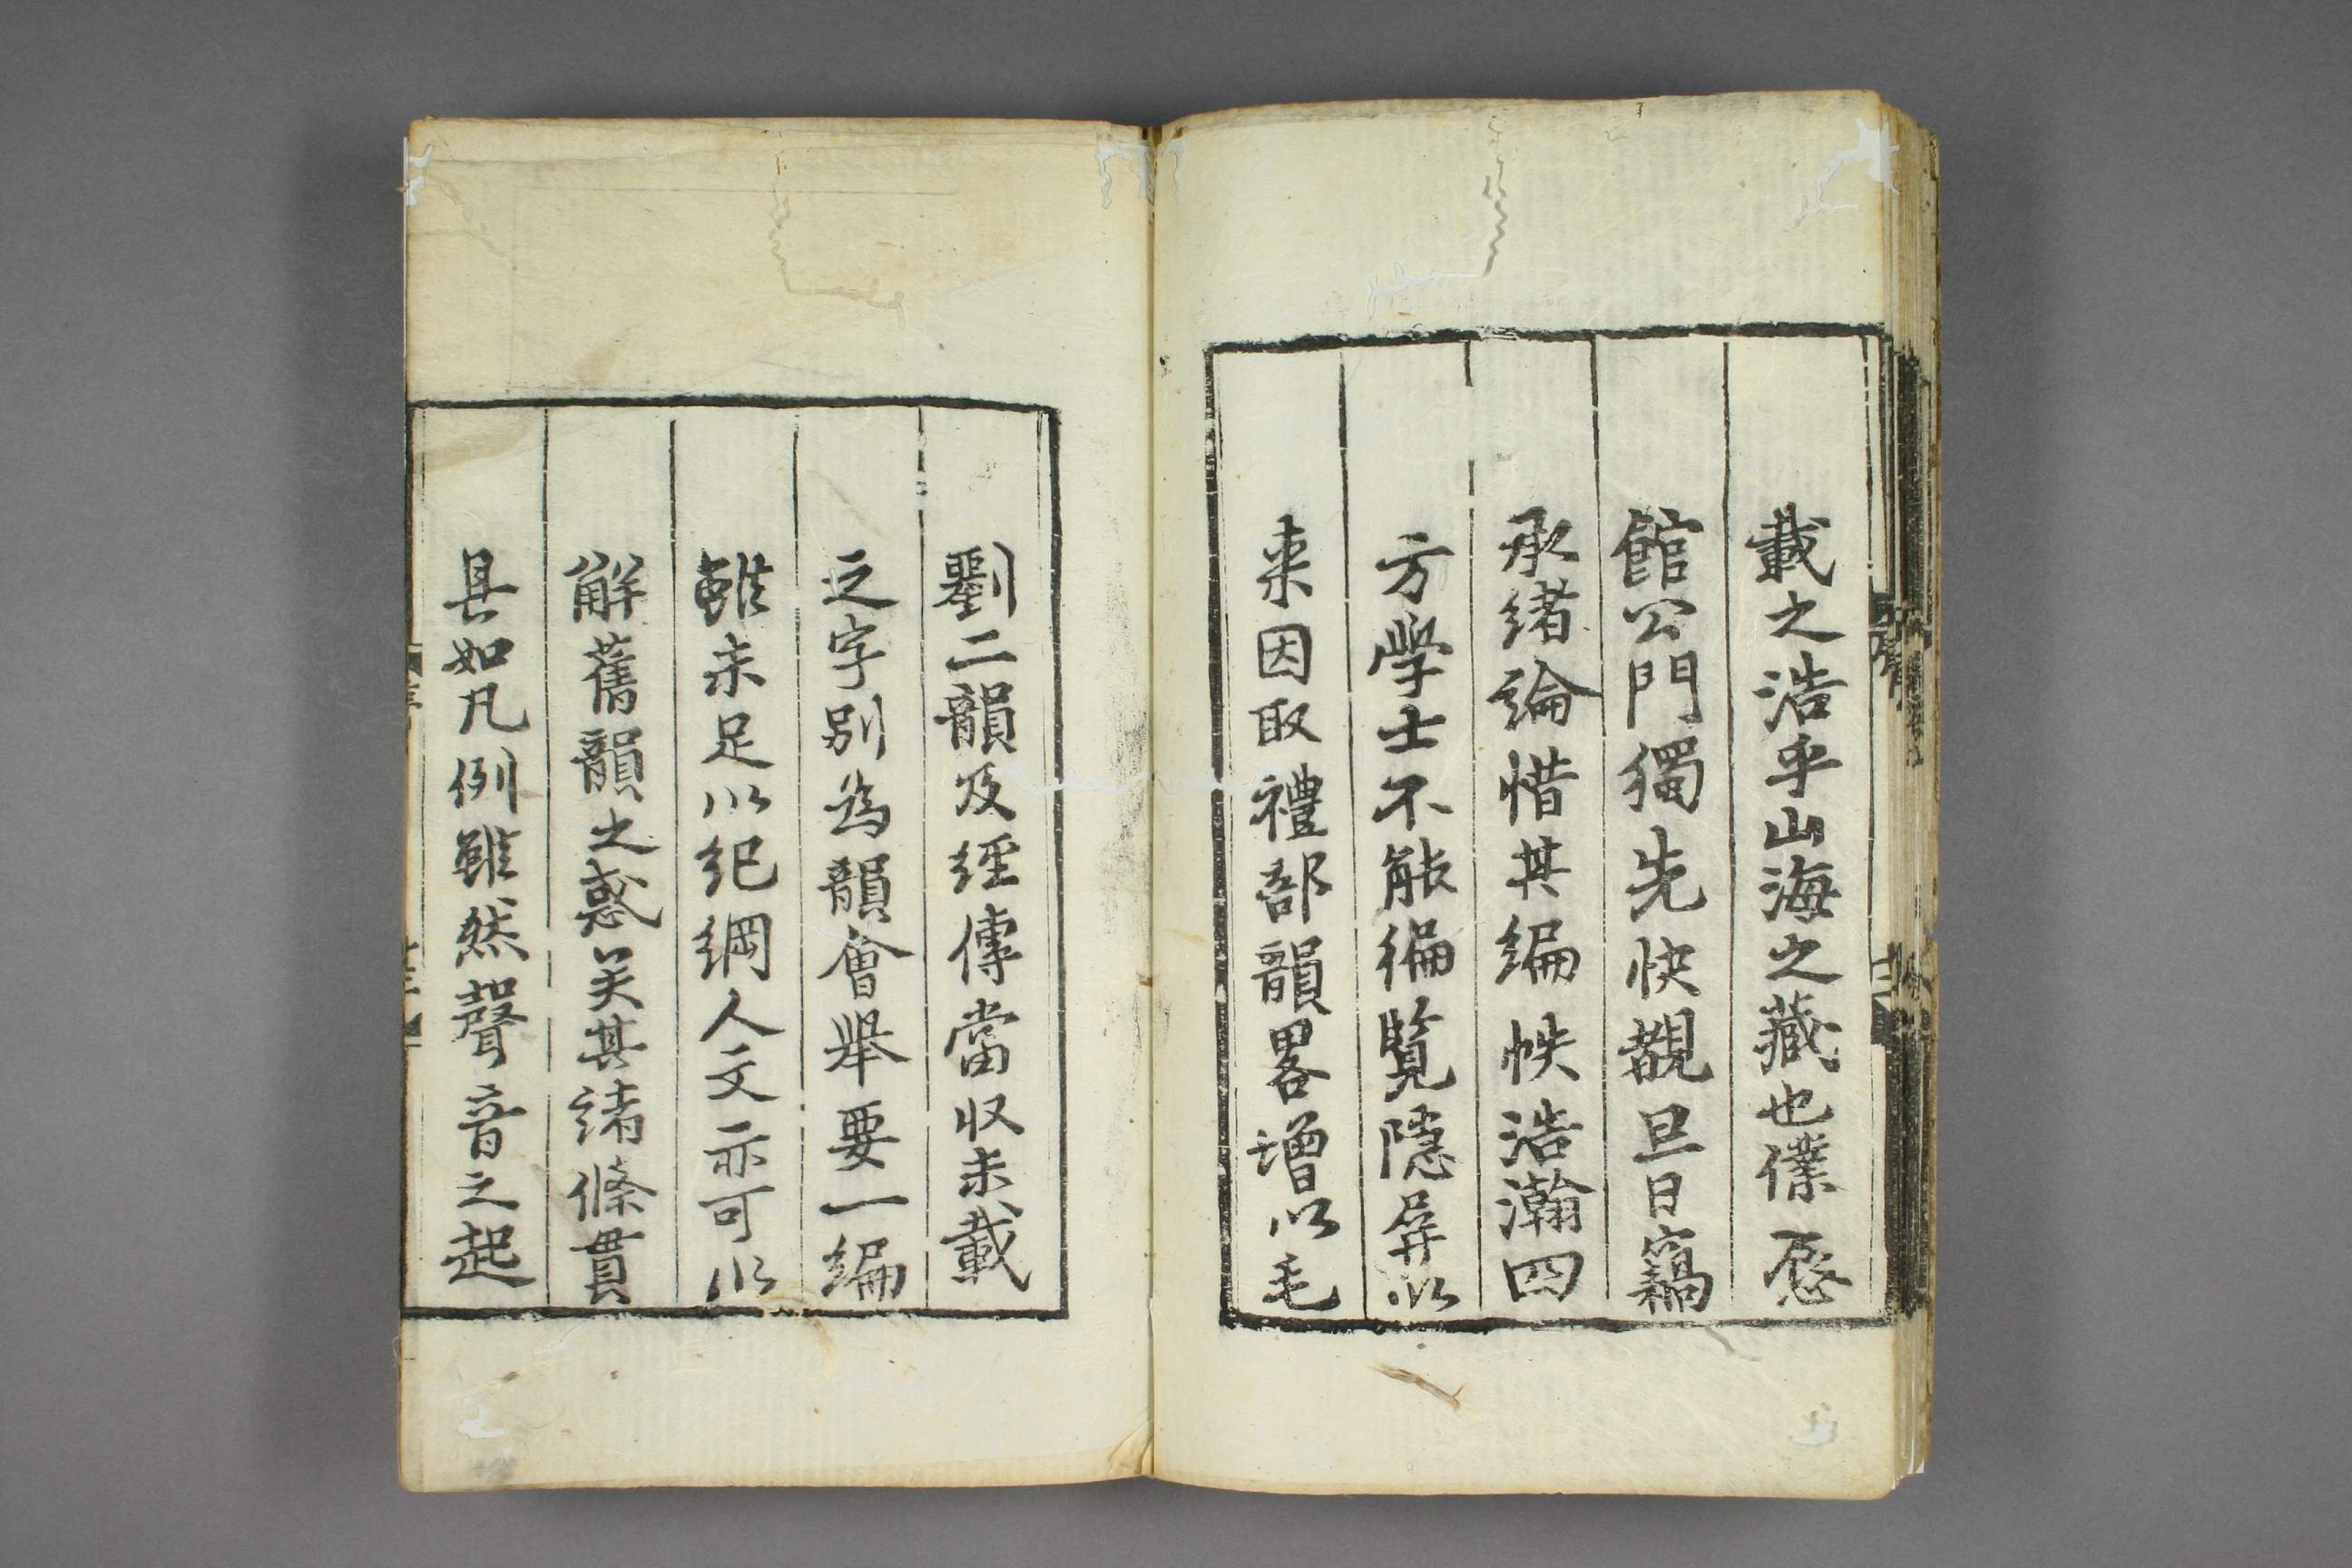 載之浩乎山海之藏也僕忝
館公門獨先快覩旦日竊
承緒論惜其編帙浩瀚四
方學士不能徧覽隱屏以
来因取禮部韻畧增以毛
劉二韻及經傳當収未載
之字別為韻會舉要一編
雖未足以紀綱人文亦可以
解舊韻之惑矣其諸條貫
具如凡例雖然聲音之起